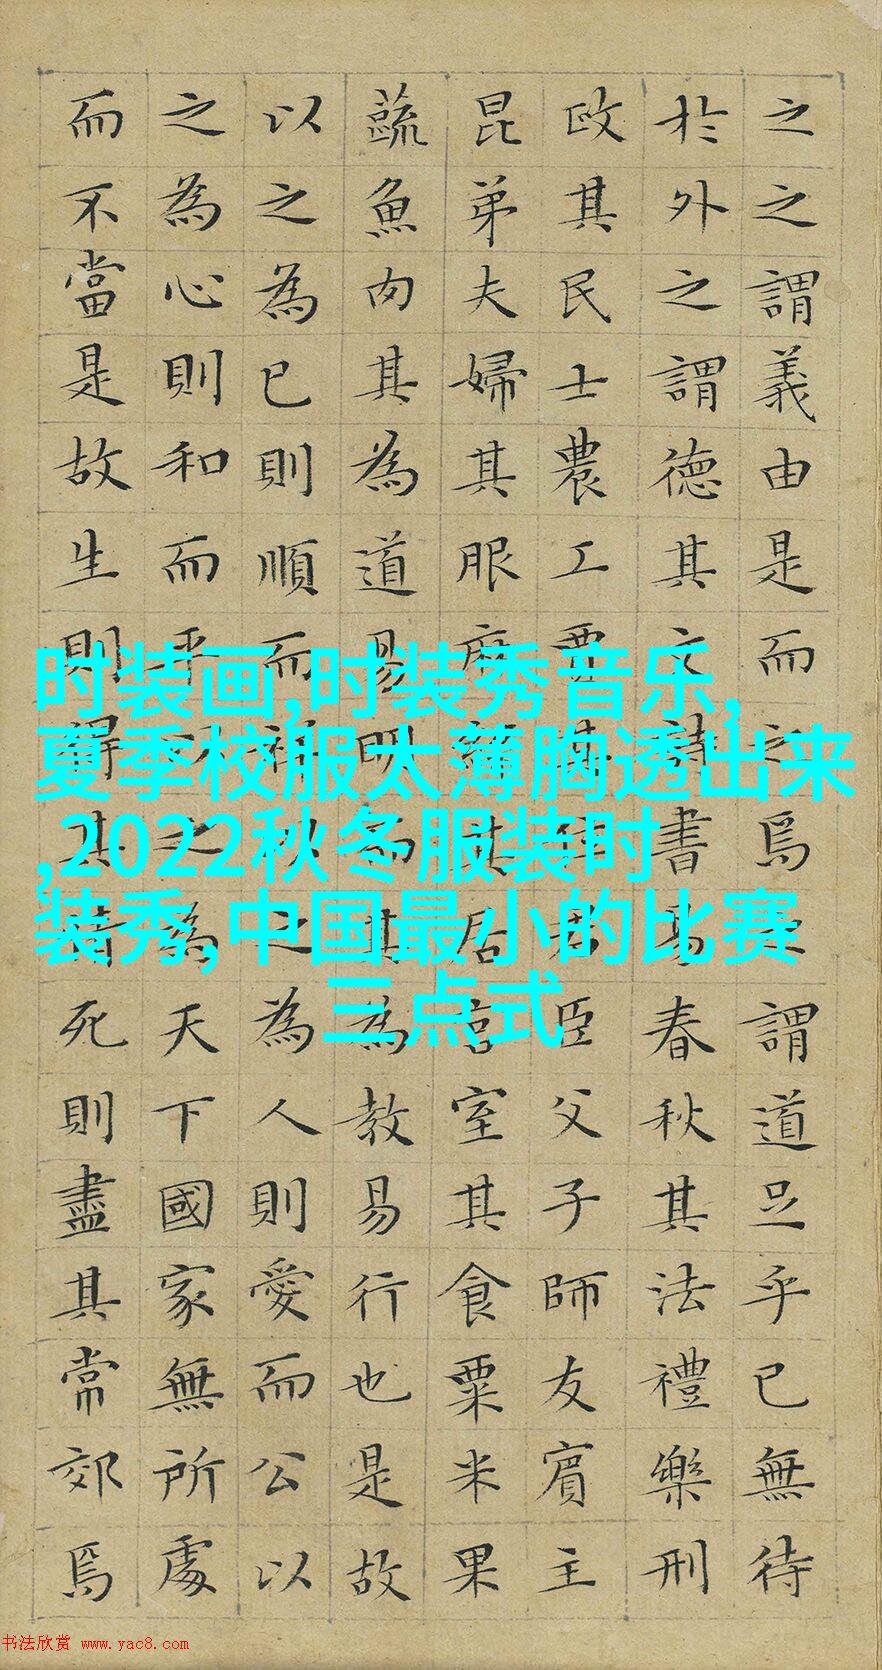 之之謂義由是而之焉之謂道足乎已無待
於外之謂德其文詩書易春秋其法禮樂刑
政其民士農工賈其位君臣父子師友賓主
昆弟夫婦其服麻其居宮室其食粟米果
蔬魚肉其為道易明而其為教易行也是故
以之為己則順而祥以之為人則愛而公以
之為心則和而平之為天下國家無所處
而不當是故生則得其情死則盡其常郊焉
时装画,时装秀音乐,
夏季校服太薄胸透出来
,2022秋冬服装时
装秀,中国最小的比赛
三点式
书法欣赏 www.yac8.com